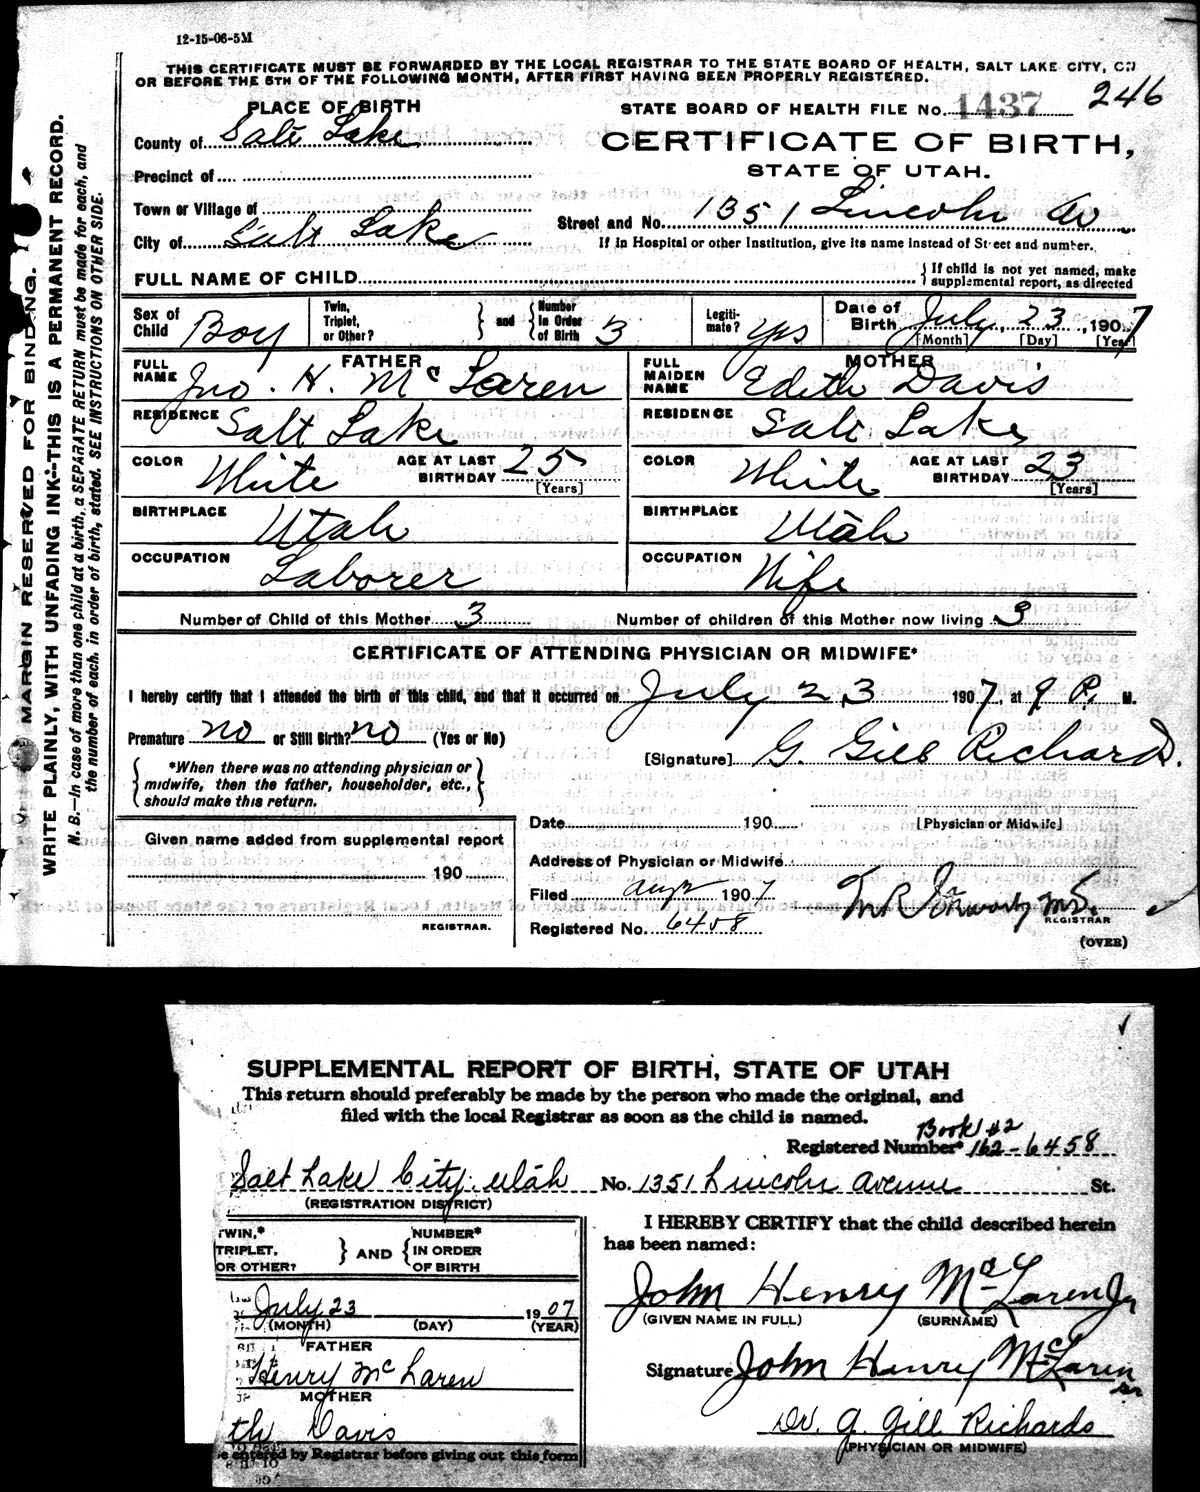 12-15-06-5M
THIS CERTIFICATE MUST BE FORWARDED BY THE LOCAL REGISTRAR TO THE STATE BOARD OF HEALTH, SALT LAKE CITY, ON
OR BEFORE THE 5TH OF THE FOLLOWING MONTH, AFTER FIRST HAVING BEEN PROPERLY REGISTERED.
246
PLACE OF BIRTH
STATE BOARD OF HEALTH FILE No. 1437
County of Salt Lake
CERTIFICATE OF BIRTH,
STATE OF UTAH.
Precinct of
Town or Village of
Street and No. 1351 Lincoln Av
City of Salt Lake
If in Hospital or other Institution, give its name instead of Street and number.
FULL NAME OF CHILD
{If child is not yet named, make
supplemental report, as directed
Sex of Child Boy
Twin, Triplet, or Other? } and { Number in Order of Birth 3
Legitimate? yes
Date of Birth July 23, 1907
[Month] [Day] [Year]
FATHER
FULL NAME Jno. H. McLaren
MOTHER
FULL MAIDEN NAME Edith Davis
RESIDENCE Salt Lake
RESIDENCE Salt Lake
COLOR White AGE AT LAST BIRTHDAY 25 [Years]
COLOR White AGE AT LAST BIRTHDAY 23 [Years]
BIRTHPLACE Utah
BIRTHPLACE Utah
OCCUPATION Laborer
OCCUPATION Wife
Number of Child of this Mother 3 Number of children of this Mother now living 3
CERTIFICATE OF ATTENDING PHYSICIAN OR MIDWIFE*
I hereby certify that I attended the birth of this child, and that it occurred on July 23 1907, at 9 P. M.
Premature no or Still Birth? no (Yes or No)
[Signature] G. Gill Richards.
{*When there was no attending physician or
midwife, then the father, householder, etc.,
should make this return.}
[Physician or Midwife]
Date 190
Given name added from supplemental report
190
REGISTRAR.
Address of Physician or Midwife
Filed Aug 2 1907
REGISTRAR
Registered No. 6458
(OVER)
MARGIN RESERVED FOR BINDING.
WRITE PLAINLY, WITH UNFADING INK--THIS IS A PERMANENT RECORD.
N. B.—In case of more than one child at a birth, a SEPARATE RETURN must be made for each, and
the number of each, in order of birth, stated. SEE INSTRUCTIONS ON OTHER SIDE.
SUPPLEMENTAL REPORT OF BIRTH, STATE OF UTAH
This return should preferably be made by the person who made the original, and
filed with the local Registrar as soon as the child is named.
Book #2
Registered Number* 162-6458
Salt Lake City. Utah No. 1351 Lincoln Avenue St.
(REGISTRATION DISTRICT)
TWIN,* TRIPLET, OR OTHER? } AND { NUMBER* IN ORDER OF BIRTH
I HEREBY CERTIFY that the child described herein
has been named:
John Henry McLaren Jr
(GIVEN NAME IN FULL) (SURNAME)
July 23 1907
(MONTH) (DAY) (YEAR)
FATHER
Henry McLaren
Signature John Henry McLaren
Sr
MOTHER
th Davis
Dr. G. Gill Richards
(PHYSICIAN OR MIDWIFE)
entered by Registrar before giving out this form